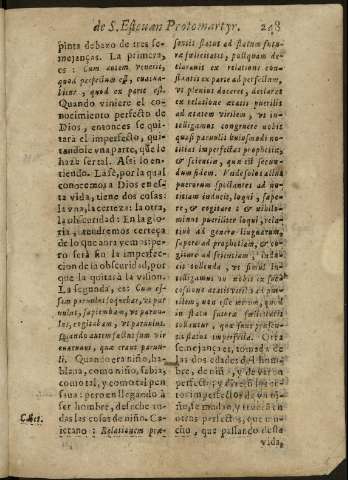 de S. Esteuan Protomartyr. 248
pinta debaxo de tres se-
mejanças. La primera,
es: Cum autem venerit,
quod perfectum est, euacua-
bitur, quod ex parte est.
Quando viniere el co-
nocimiento perfecto de
Dios, entonces se qui-
tarà el imperfecto, qui-
tandole vna parte, que le
haze ser tal. Assi lo en-
tiendo. La Fè, por la qual
conocemos a Dios en es-
ta vida, tiene dos cosas:
la vna, la certeza: la otra,
la obscuridad: En la glo-
ria, tendremos certeça
de lo que aora
serà sin la imperfec-
cion de la obscuridad, por
que la quitarà la vision.
La segunda, es: Cum es-
sem paruulus loquebar, vt par-
uulus, sapiebam, vt paruu-
lus, cogitabam, vt paruulus.
Quando autem factus sum vir
euacuaui, quæ erant paruu-
li. Quando era niño, ha-
blaua, como niño, sabia,
como tal, y como tal pen
saua: pero en llegando à
ser hombre, deseche to-
das las cosas de niño. Ca-
ietano: Relationem præ-
Caiet.
sentis status ad statum futu-
ræ fœlicitatis, postquam de-
clarauit ex relatione cons-
tantis ex parte ad perfectum,
vt plenius doceret, declarat
ex relatione ætatis puerilis
ad ætatem virilem, vt in-
telligamus congruere nobis
quasi paruulis huiusmodi no-
titias imperfectas prophetiæ,
& scientiæ, quæ est secun-
dum fidem. Vnde solos actus
puerorum spectantes ad no-
titiam inducit, loqui, sape-
re, & cogitare
pueriliter loqui, rela-
tiue ad genera linguarum,
sapere ad prophetiam, & co-
gitare ad scientiam,
vt simul in-
nobis ex
ætatis virilis ad pue-
rilem, non esse mirum, quod
in statu futuræ fœlicitatis
tollantur, quæ sunt præsen-
tis status imperfecta. Otra
semejança es, tomada de
las dos edades del hom-
bre, de niño, y de veron
perfecto; y dize, que mu-
chos imperfectos de vn ni-
ño, se mudan, y truecan en
otros perfectos, que mu-
cho, que passando desta
vida,